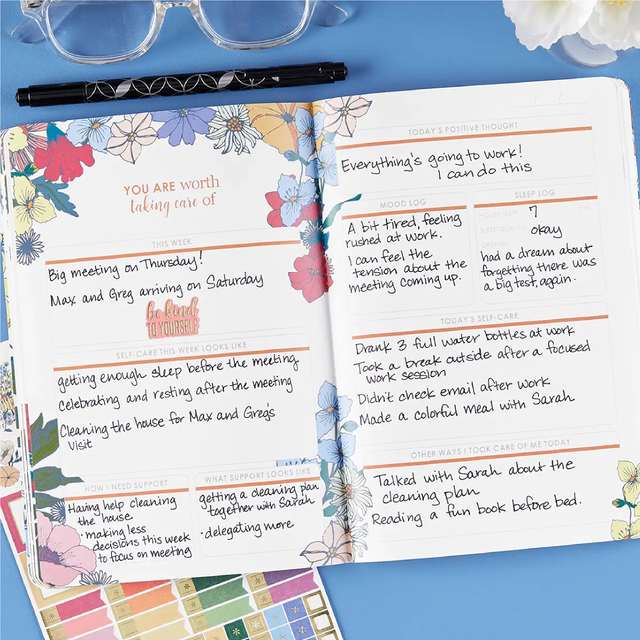 YOU ARE worth
taking care of
THIS WEEK
Big meeting on Thursday!
Max and Greg arriving on Saturday
be kind
TO YOURSELF
SELF-CARE THIS WEEK LOOKS LIKE
getting enough sleep before the meeting
celebrating and resting after the meeting
Cleaning the house for Max and Greg's
visit
HOW I NEED SUPPORT
Having help cleaning
the house.
• making less
decisions this week
to focus on meeting
WHAT SUPPORT LOOKS LIKE
getting a cleaning plan
together with Sarah
• delegating more
TODAY'S POSITIVE THOUGHT
Everything's going to work!
I can do this
MOOD LOG
A bit tired, feeling
rushed at work.
I can feel the
tension about the
meeting coming up.
SLEEP LOG
HOURS SLEPT 7
SLEEP QUALITY okay
DREAMS
had a dream about
forgetting there was
a big test, again.
TODAY'S SELF-CARE
Drank 3 full water bottles at work
Took a break outside after a focused
work session
Didn't check email after work
Made a colorful meal with Sarah
OTHER WAYS I TOOK CARE OF ME TODAY
Talked with Sarah about the
cleaning plan
Reading a fun book before bed.